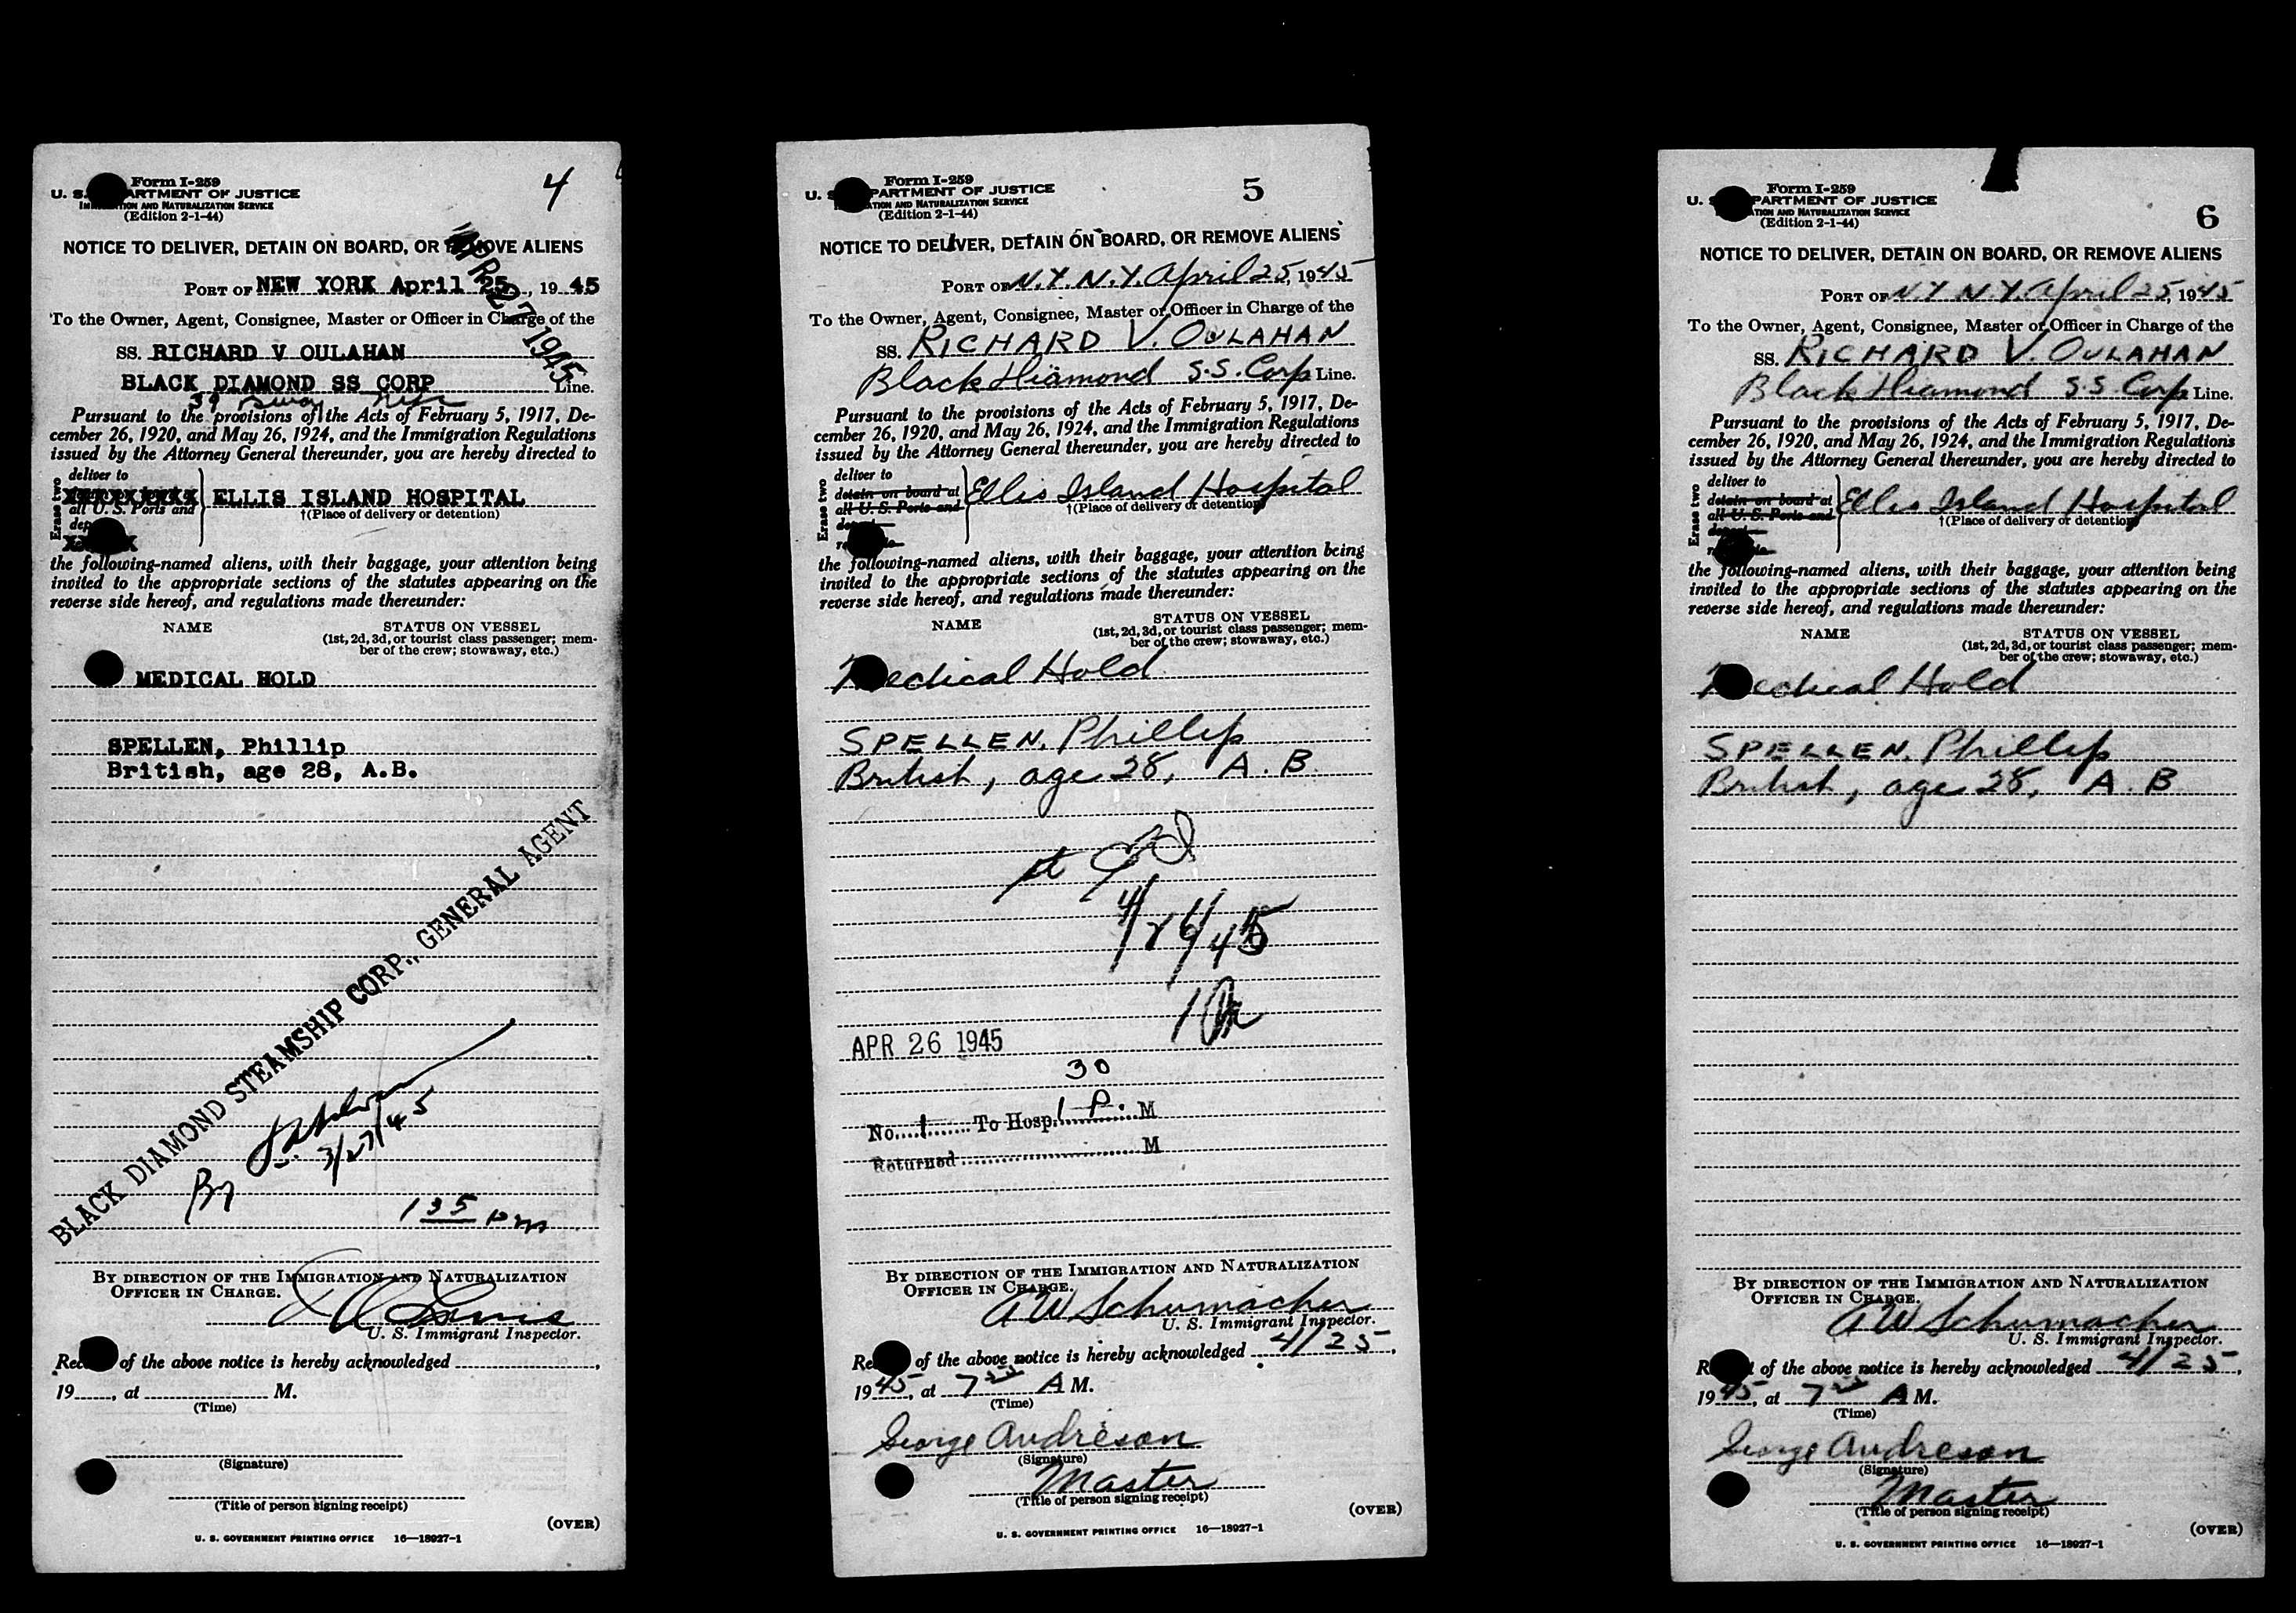 Form I-259
U. S. DEPARTMENT OF JUSTICE
IMMIGRATION AND NATURALIZATION SERVICE
(Edition 2-1-44)
4
NOTICE TO DELIVER, DETAIN ON BOARD, OR REMOVE ALIENS
APR 27 1945
PORT OF NEW YORK April 25, 1945
To the Owner, Agent, Consignee, Master or Officer in Charge of the
SS. RICHARD V OULAHAN
BLACK DIAMOND SS CORP Line.
39
Pursuant to the provisions of the Acts of February 5, 1917, De-
cember 26, 1920, and May 26, 1924, and the Immigration Regulations
issued by the Attorney General thereunder, you are hereby directed to
Erase two
deliver to
all U. S. Ports and
ELLIS ISLAND HOSPITAL
†(Place of delivery or detention)
the following-named aliens, with their baggage, your attention being
invited to the appropriate sections of the statutes appearing on the
reverse side hereof, and regulations made thereunder:
NAME STATUS ON VESSEL
(1st, 2d, 3d, or tourist class passenger; mem-
ber of the crew; stowaway, etc.)
MEDICAL HOLD
SPELLEN, Phillip
British, age 28, A.B.
BLACK DIAMOND STEAMSHIP CORP., GENERAL AGENT
By
3/27/45
1 35 pm
BY DIRECTION OF THE IMMIGRATION AND NATURALIZATION
OFFICER IN CHARGE.
U. S. Immigrant Inspector.
Receipt of the above notice is hereby acknowledged
19 , at M.
(Time)
(Signature)
(Title of person signing receipt)
(OVER)
U. S. GOVERNMENT PRINTING OFFICE 16—18927-1
Form I-259
U. S. DEPARTMENT OF JUSTICE
IMMIGRATION AND NATURALIZATION SERVICE
(Edition 2-1-44)
5
NOTICE TO DELIVER, DETAIN ON BOARD, OR REMOVE ALIENS
PORT OF N.Y. N.Y. April 25, 1945
To the Owner, Agent, Consignee, Master or Officer in Charge of the
SS. RICHARD V. OULAHAN
Black Diamond S.S. Corp Line.
Pursuant to the provisions of the Acts of February 5, 1917, De-
cember 26, 1920, and May 26, 1924, and the Immigration Regulations
issued by the Attorney General thereunder, you are hereby directed to
Erase two
deliver to
detain on board at
all U. S. Ports and
Ellis Island Hospital
†(Place of delivery or detention)
the following-named aliens, with their baggage, your attention being
invited to the appropriate sections of the statutes appearing on the
reverse side hereof, and regulations made thereunder:
NAME STATUS ON VESSEL
(1st, 2d, 3d, or tourist class passenger; mem-
ber of the crew; stowaway, etc.)
Medical Hold
SPELLEN, Phillip
British, age 28, A.B.
4/26/45
APR 26 1945
30
No. 1 To Hosp. 1 P. M
Returned M
BY DIRECTION OF THE IMMIGRATION AND NATURALIZATION
OFFICER IN CHARGE.
A W Schumacher
U. S. Immigrant Inspector.
Receipt of the above notice is hereby acknowledged 4/25,
1945, at 7 A M.
(Time)
George Andreson
(Signature)
Master
(Title of person signing receipt)
(OVER)
U. S. GOVERNMENT PRINTING OFFICE 16—18927-1
Form I-259
U. S. DEPARTMENT OF JUSTICE
IMMIGRATION AND NATURALIZATION SERVICE
(Edition 2-1-44)
6
NOTICE TO DELIVER, DETAIN ON BOARD, OR REMOVE ALIENS
PORT OF N.Y. N.Y. April 25, 1945
To the Owner, Agent, Consignee, Master or Officer in Charge of the
SS. RICHARD V. OULAHAN
Black Diamond S.S. Corp Line.
Pursuant to the provisions of the Acts of February 5, 1917, De-
cember 26, 1920, and May 26, 1924, and the Immigration Regulations
issued by the Attorney General thereunder, you are hereby directed to
Erase two
deliver to
detain on board at
all U. S. Ports and
Ellis Island Hospital
†(Place of delivery or detention)
the following-named aliens, with their baggage, your attention being
invited to the appropriate sections of the statutes appearing on the
reverse side hereof, and regulations made thereunder:
NAME STATUS ON VESSEL
(1st, 2d, 3d, or tourist class passenger; mem-
ber of the crew; stowaway, etc.)
Medical Hold
SPELLEN, Phillip
British, age 28, A.B
BY DIRECTION OF THE IMMIGRATION AND NATURALIZATION
OFFICER IN CHARGE.
A W Schumacher
U. S. Immigrant Inspector.
Receipt of the above notice is hereby acknowledged 4/25,
1945, at 7 A M.
(Time)
George Andreson
(Signature)
Master
(Title of person signing receipt)
(OVER)
U. S. GOVERNMENT PRINTING OFFICE 16—18927-1